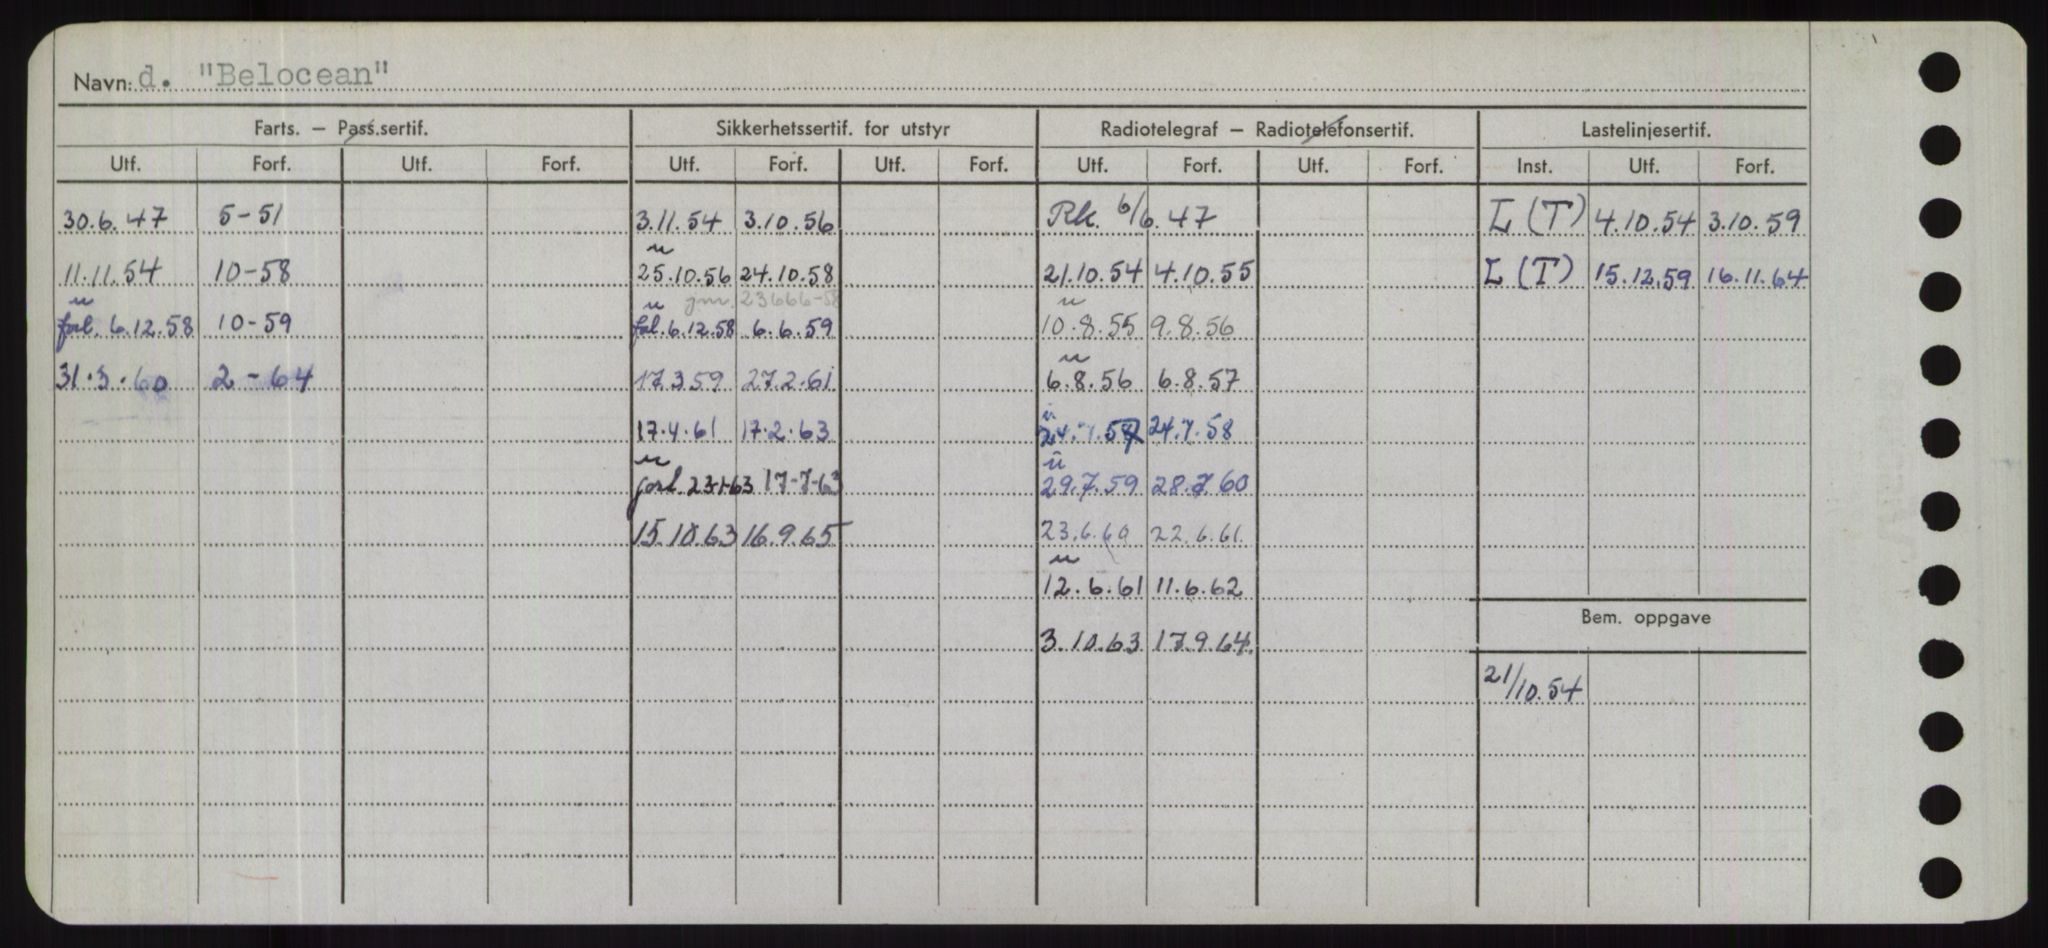 Navn: d. "Belocean"
Farts. – Pass.sertif. Sikkerhetssertif. for utstyr Radiotelegraf – Radiotelefonsertif. Lastelinjesertif.
Utf. Forf. Utf. Forf. Utf. Forf. Utf. Forf. Utf. Forf. Utf. Forf. Inst. Utf. Forf.
30.6.47 5-51 3.11.54 3.10.56 Rk. 6/6.47 L (T) 4.10.54 3.10.59
u
11.11.54 10-58 25.10.56 24.10.58 21.10.54 4.10.55 L (T) 15.12.59 16.11.64
u u jnr. 23666-58 u
forl. 6.12.58 10-59 fol. 6.12.58 6.6.59 10.8.55 9.8.56
u
31.3.60 2-64 17.3.59 27.2.61 6.8.56 6.8.57
u
17.4.61 17.2.63 24.7.57 24.7.58
u u
forl. 23-1-63 17-7-63 29.7.59 28.7.60
15.10.63 16.9.65 23.6.60 22.6.61
u
12.6.61 11.6.62
Bem. oppgave
3.10.63 17.9.64
21/10.54